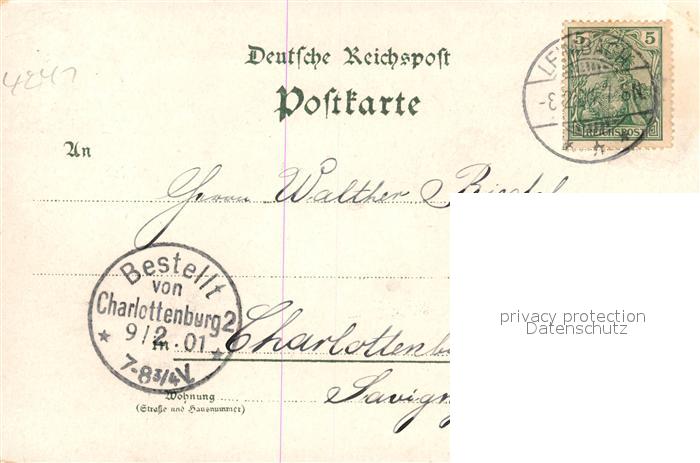 Deutsche Reichspost
Postkarte
4247
5 5
REICHSPOST
An
Herrn Walther
Bestellt
von
Charlottenburg 2
9/2. 01
7-8 3/4 V.
in Charlottenb
Savign
Wohnung
(Straße und Hausnummer)
privacy protection
Datenschutz